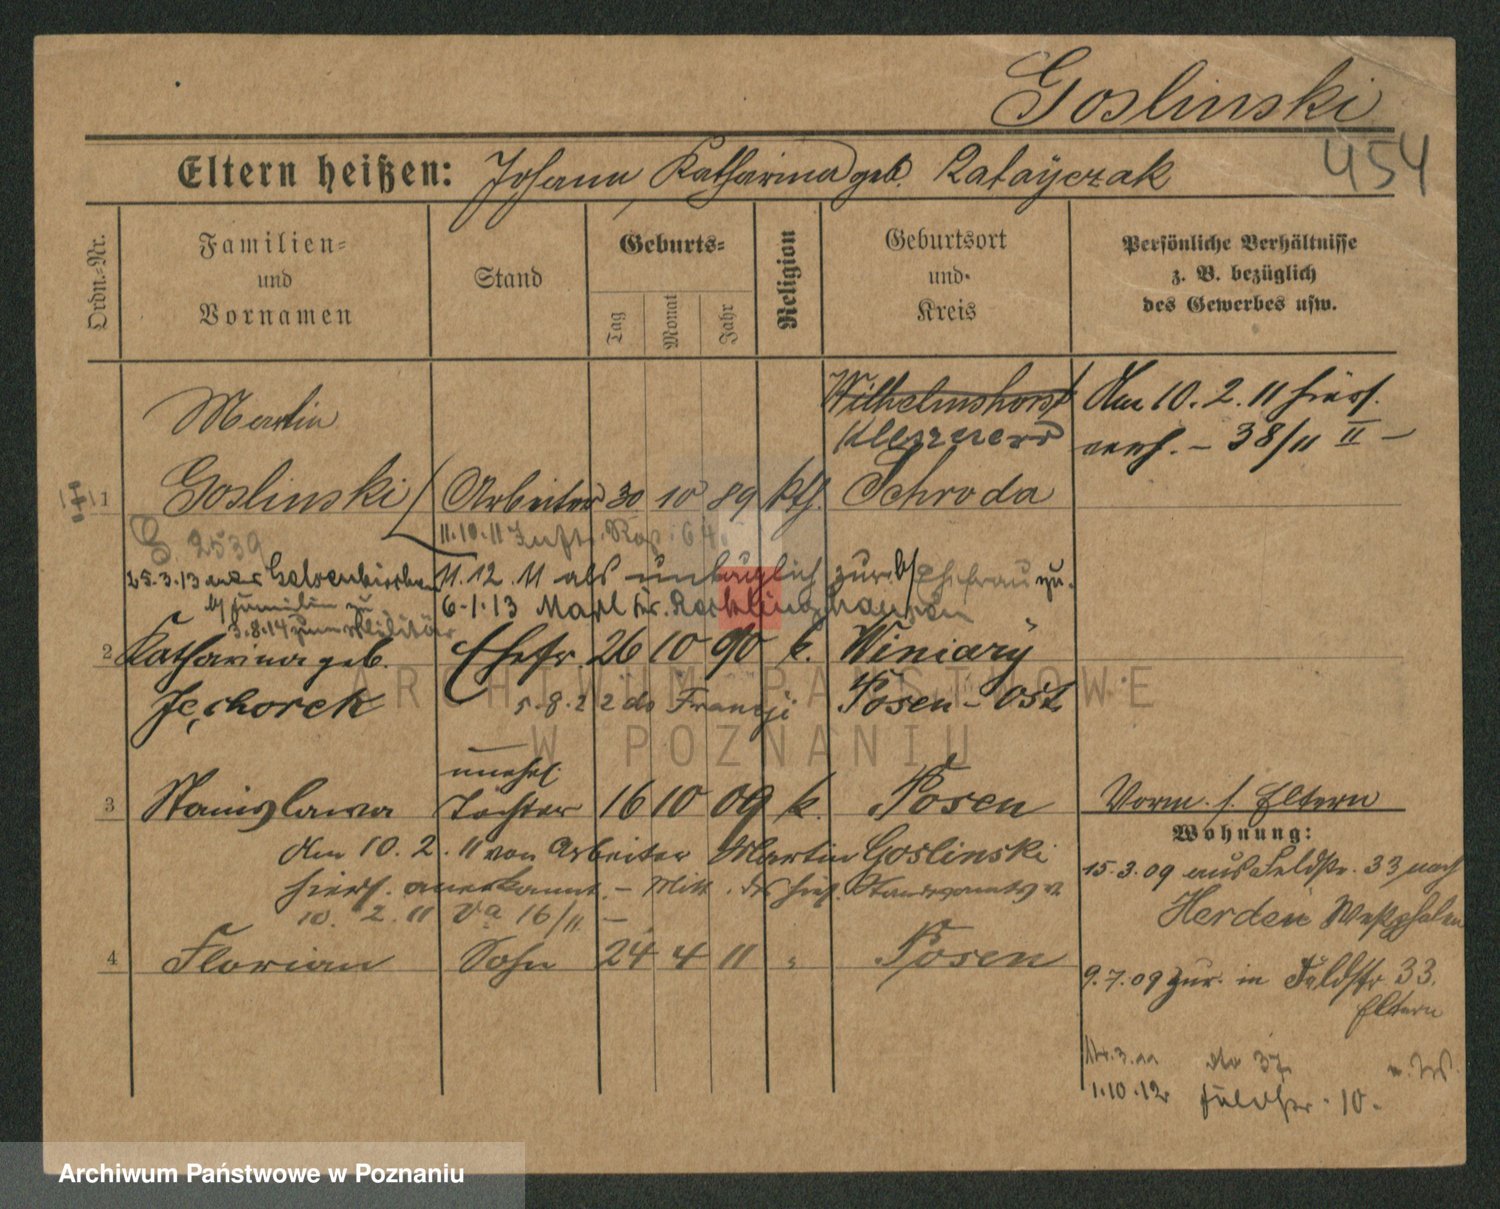 Goslinski
454
Eltern heißen: Johann, Katharina geb. Rataÿczak
Ordn.-Nr.
Familien-
und
Vornamen
Stand
Geburts-
Tag
Monat
Jahr
Religion
Geburtsort
und
Kreis
Persönliche Verhältnisse
z. B. bezüglich
des Gewerbes usw.
Martin
Wilhelmshorst
Am 10. 2. 11 hiers.
verh. – 38/11 II –
1 Goslinski Arbeiter 30 10 89 kth. Schroda
G. 2539
11.10.11 Inftr. Rgt. 64.
25.3.13 nach Gelsenkirchen
11.12.11 als untauglich zur. b/ Ehefrau zu.
b/ Familie zu
6.1.13 Marl Kr. Recklinghausen
3.8.14 zum Militär
2 Katharina geb. Ehefr 26 10 90 k. Winiary
Jeschorek
5.8.22 do Francji
Posen-Ost
unehel.
3 Stanislawa Tochter 16 10 09 k. Posen
Vorm. s. Eltern
Wohnung:
Am 10. 2. 11 von Arbeiter Martin Goslinski
hiers. anerkannt. – Mitt. des hies. Standesamts v.
10. 2. 11 Va 16/11 –
15.3.09 aus Feldstr. 33 nach
Herden Westphalen
4 Florian Sohn 24 4 11 " Posen
9.7.09 zur. in Feldstr 33.
Eltern
do 37
1.10.12 Feldstr. 10.
ARCHIWUM PAŃSTWOWE
W POZNANIU
Archiwum Państwowe w Poznaniu